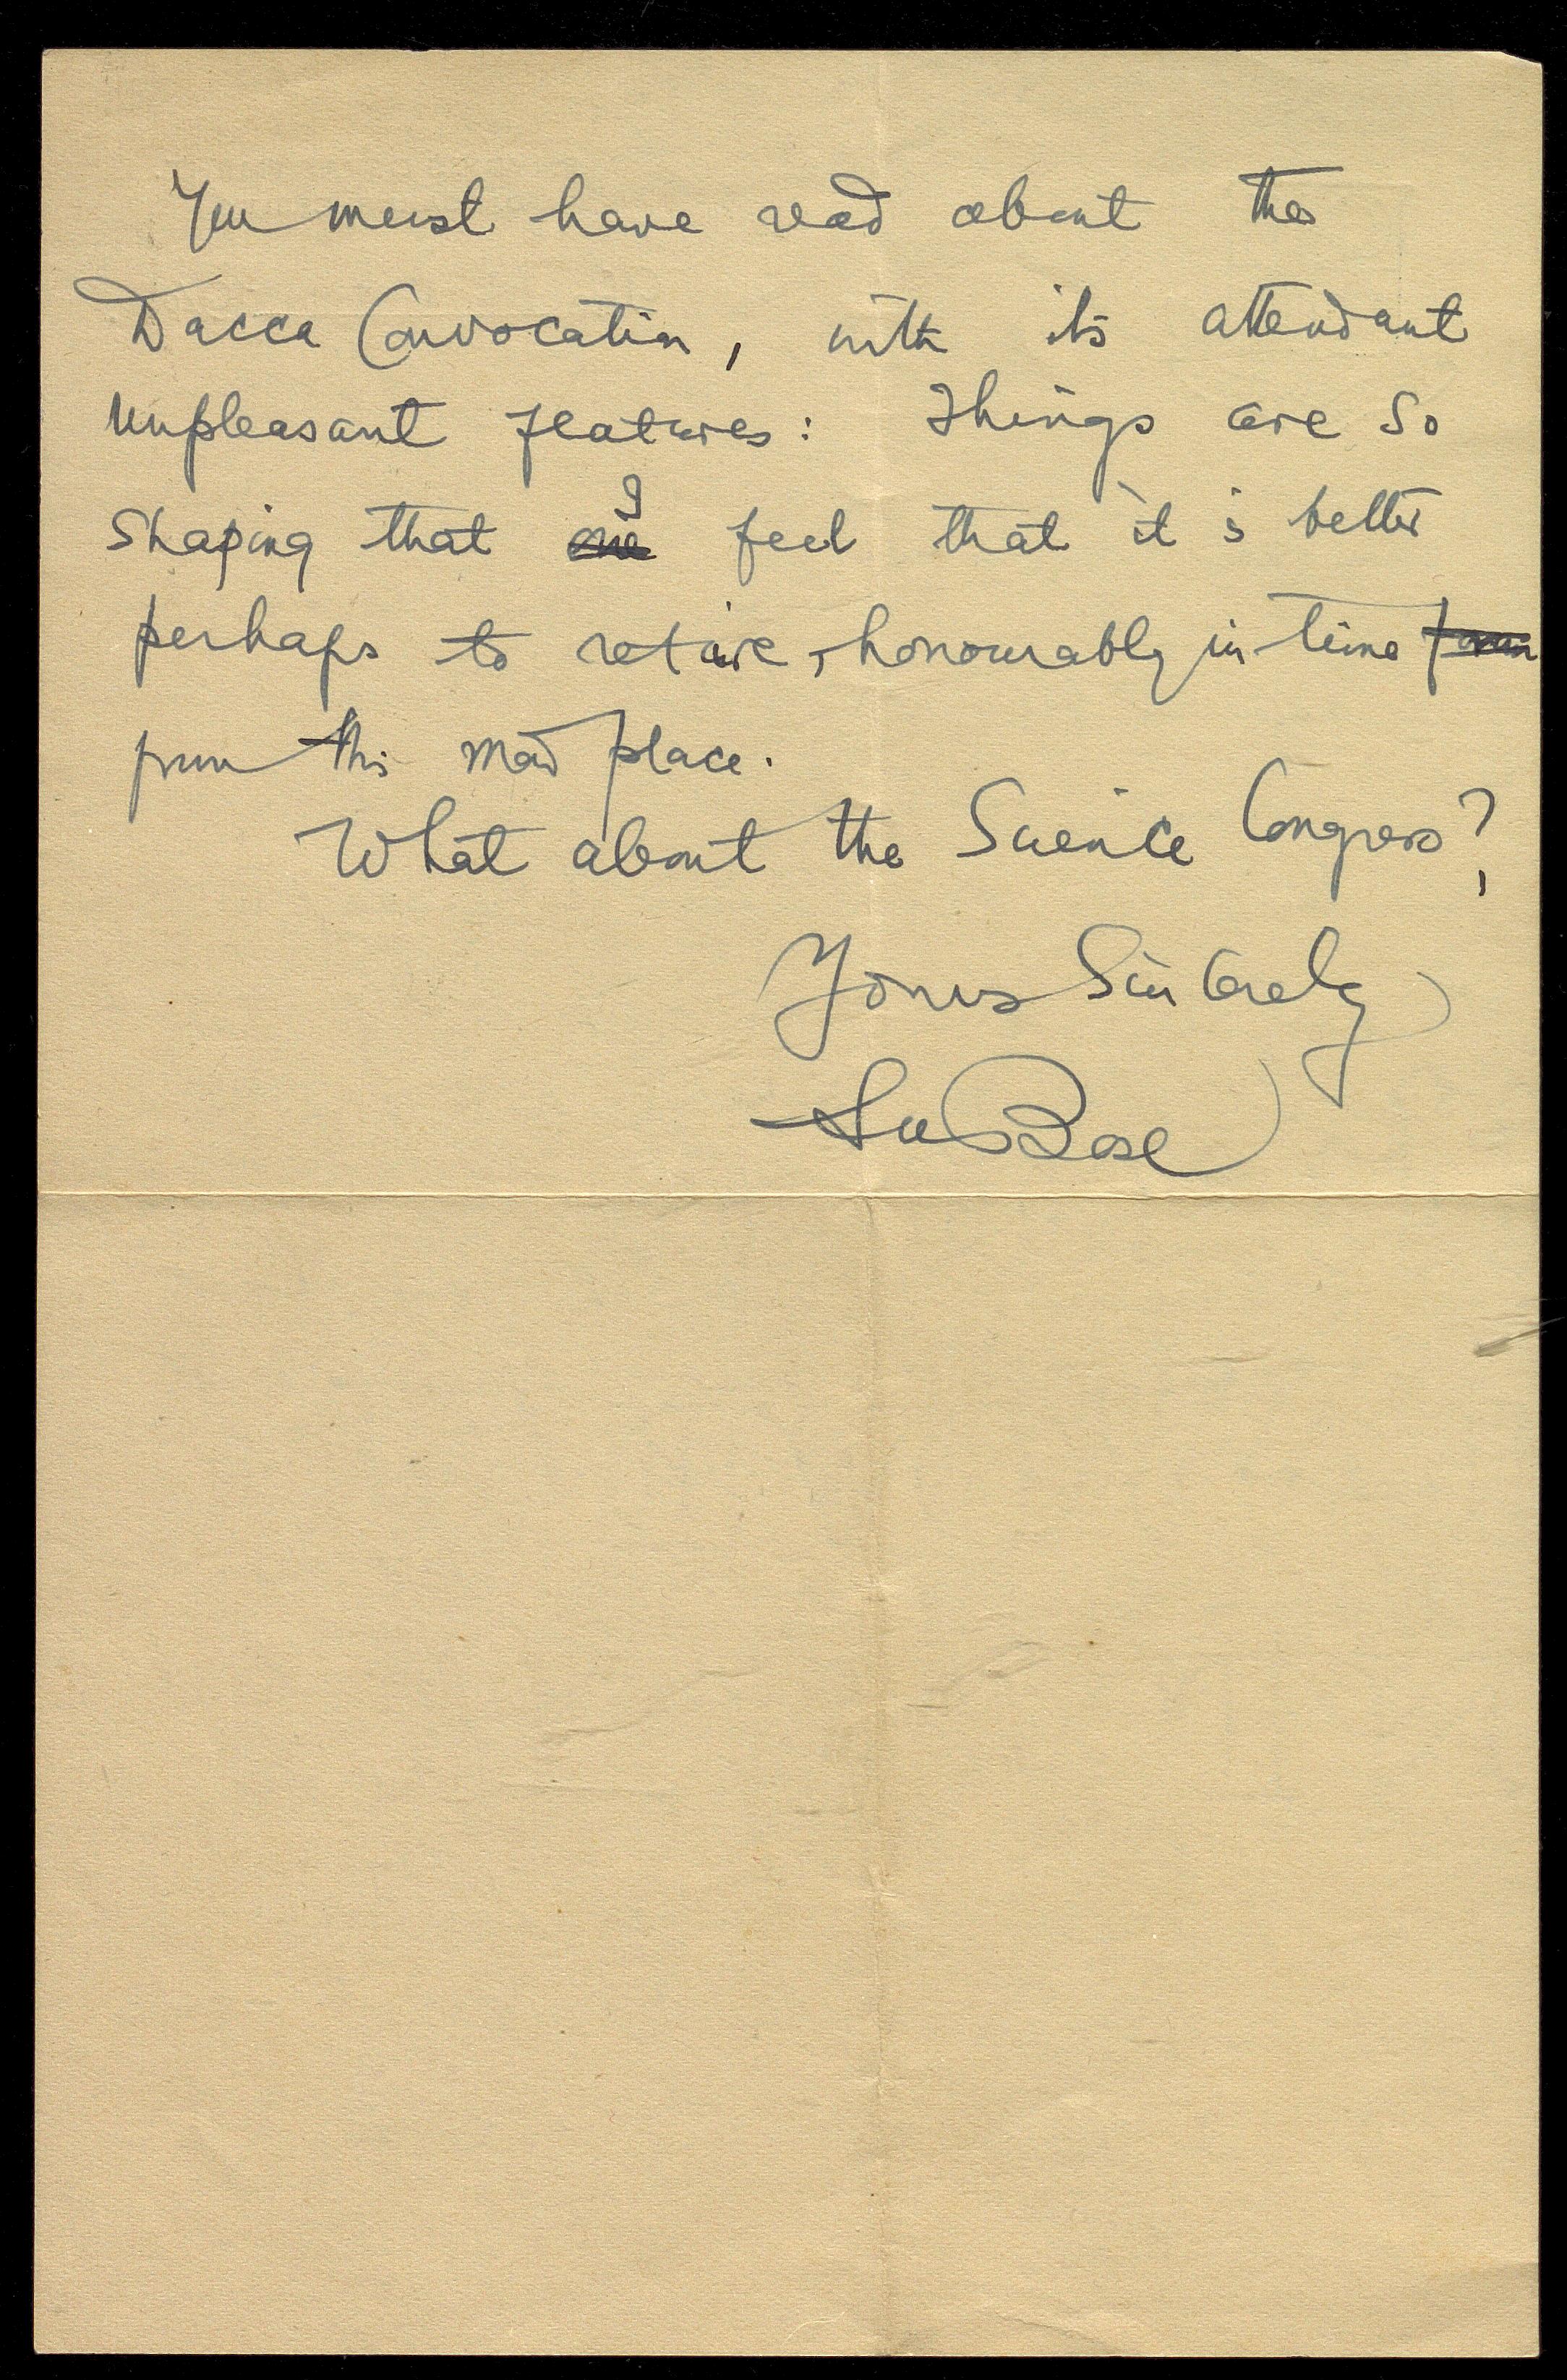 You must have read about the
Dacca Convocation, with its attendant
unpleasant features: Things are so
I
shaping that one feel that it is better
perhaps to retire, honourably in time from
from this mad place.
What about the Science Congress?
Yours Sincerely
SNBose